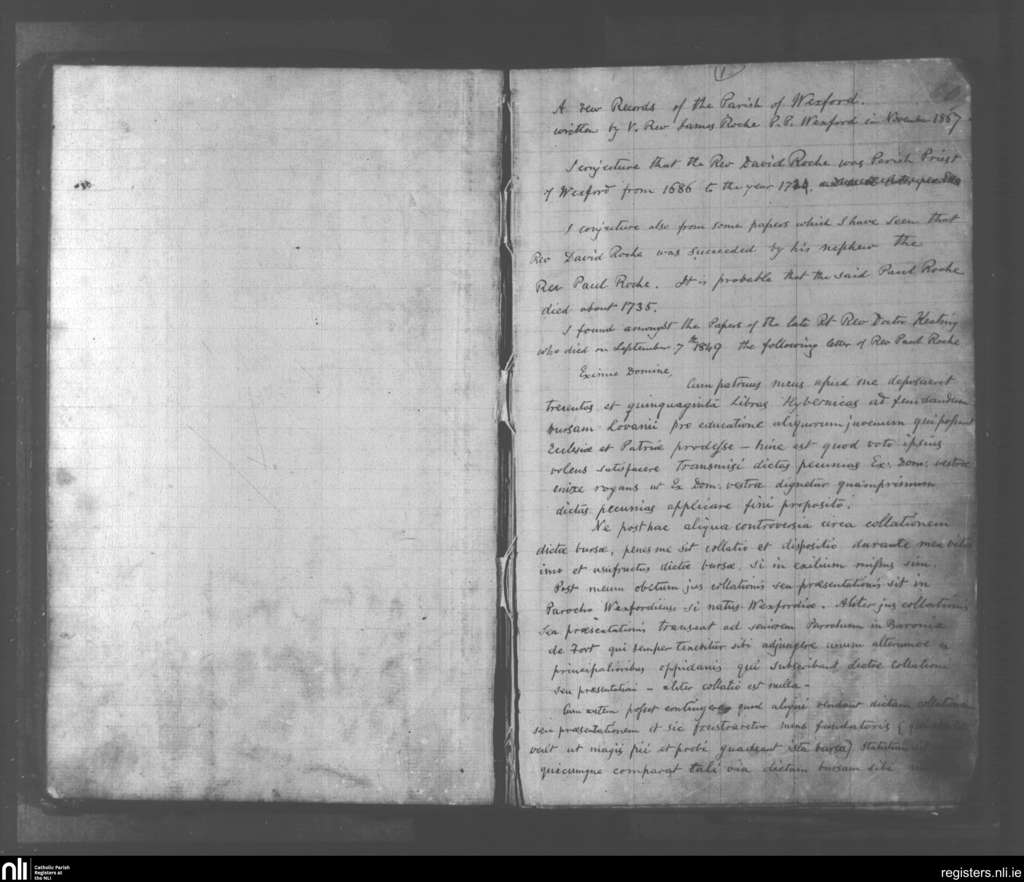 (1)
A few Records of the Parish of Wexford.
written by V. Rev James Roche P.P. Wexford in November 1867
I conjecture that the Rev David Roche was Parish Priest
of Wexford from 1686 to the year
I conjecture also from some papers which I have seen that
Rev David Roche was succeeded by his nephew the
Rev Paul Roche. It is probable that the said Paul Roche
died about 1735.
I found amongst the Papers of the late Rt Rev Doctor Keating
who died on September 7th 1849 the following letter of Rev Paul Roche
Eximie Domine,
Cum patruus meus apud me deposuerit
trecentos et quinquaginta Libras Hybernicas ad fundandum
bursam Lovanii pro educatione aliquorum juvenum qui possint
Ecclesiæ et Patriæ prodesse – hinc est quod voto ipsius
volens satisfacere transmisi dictas pecunias Ex. Dom: vestræ
enixe rogans ut Ex Dom: vestra dignetur quamprimum
dictas pecunias applicare fini proposito.
Ne posthac aliqua controversia circa collationem
dictæ bursæ, penes me sit collatio et dispositio durante mea vita
imo et usufructus dictæ bursæ, si in exilium missus sim.
Post meum obitum jus collationis seu præsentationis sit in
Parocho Wexfordiensi si natus Wexfordiæ. Aliter jus collationis
seu præsentationis transeat ad seniorem Parochum in Baronia
de Fort qui semper tenebitur sibi adjungere unum alterumve e
principalioribus oppidanis qui subscribant dictæ collationi
seu præsentationi – aliter collatio est nulla –
Cum autem posset contingere quod aliqui vendant dictam collationem
seu præsentationem et sic frustraretur mens fundatoris
velit ut magis pie et probi gaudeant ista bursa) statutum sit
quicumque comparat tali via dictam bursam sibi
nli
Catholic Parish
Registers at
the NLI
registers.nli.ie